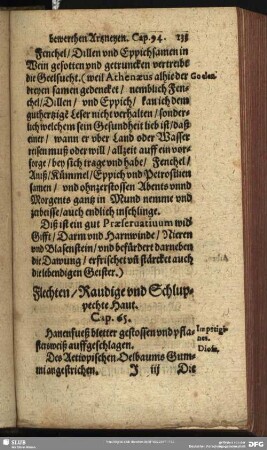 bewerthen Artzneyen. Cap. 94. 135
Fenchel/Dillen vnd Eppichsamen in
Wein gesotten vnd getruncken vertreibt
die Geelsucht. (weil Athenæus alhie der
dreyen samen gedencket / nemblich Fen-
chel/Dillen / vnd Eppich / kan ich dem
guthertzigē Leser nicht verhalten / sonder-
lich welchem sein Gesundheit lieb ist/ daß
einer / wann er vber Land oder Wasser
reisen muß oder will / allzeit auff ein vor-
sorge / bey sich trage vnd habe / Fenchel/
Anß/Kümmel/Eppich vnd Petrosilien
samen / vnd ohnzerstossen Abents vnnd
Morgents gantz in Mund nemme vnd
zerbeisse/auch endlich inschlinge.
Diß ist ein gut Præseruatiuum wid
Gifft / Darm vnd Harnwinde / Nieren
vnd Blasenstein / vnd befürdert darneben
die Dawung / erfrischet vñ stärcket auch
die lebendigen Geister.)
Flechten / Raudige vnd Schlup-
pechte Haut.
Cap. 65.
Hanenfueß bletter gestossen vnd pfla-
sterweiß auffgeschlagen.
Impetigi-
nes.
Diosc.
Des Aetiopischen Oelbaums Gum-
mi angestrichen. J iij Die
SLUB
DFG